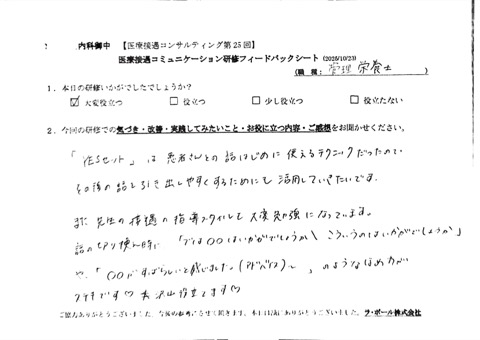 内科御中 【医療接遇コンサルティング第25回】
医療接遇コミュニケーション研修フィードバックシート (2025/10/23)
(職種: 管理栄養士 )
1. 本日の研修いかがでしたでしょうか?
☑ 大変役立つ □ 役立つ □ 少し役立つ □ 役立たない
2. 今回の研修での気づき・改善・実践してみたいこと・お役に立つ内容・ご感想をお聞かせください。
」は患者さんとの話はじめに使えるテクニックだったので
その後の話も引き出しやすくするためにも活用していきたいです。
また先生の接遇の指導スタイルも大変勉強になっています。
話の切り換え時に「ではOOはいかがでしょうか\ こういうのはいかがでしょうか」
や、「OOがすばらしいと感じました。(アドバイス)〜 」のようなほめ方が
ステキです♡ 沢山役立てます♡
ご協力ありがとうございました。今後の参考にさせて頂きます。本日は誠にありがとうございました。ラ・ポール株式会社